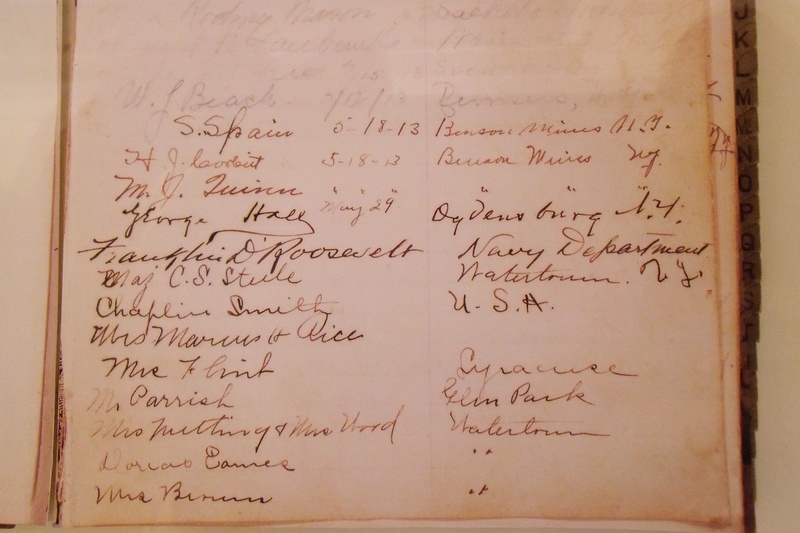 Rodney Brown
W. J. Beach 5/12/13 Remsens,
S. Spain 5-18-13 Benson Mines N.Y.
H. J. 5-18-13 Benson Mines Ny.
M. J. Quinn " " " " "
George Hall May 29 Ogdensburg N.Y.
Franklin D Roosevelt Navy Department
Maj C.S. Steele Watertown. N.Y.
Chaplin Smith U.S.A.
Mrs Marcus H Rice
Mrs Flint Syracuse
Mr Parrish Glen Park
Mrs & Mrs Wood Watertown
Dorcas Eames "
Mrs Brown "
J
K
L
M
N
O
P
Q
R
S